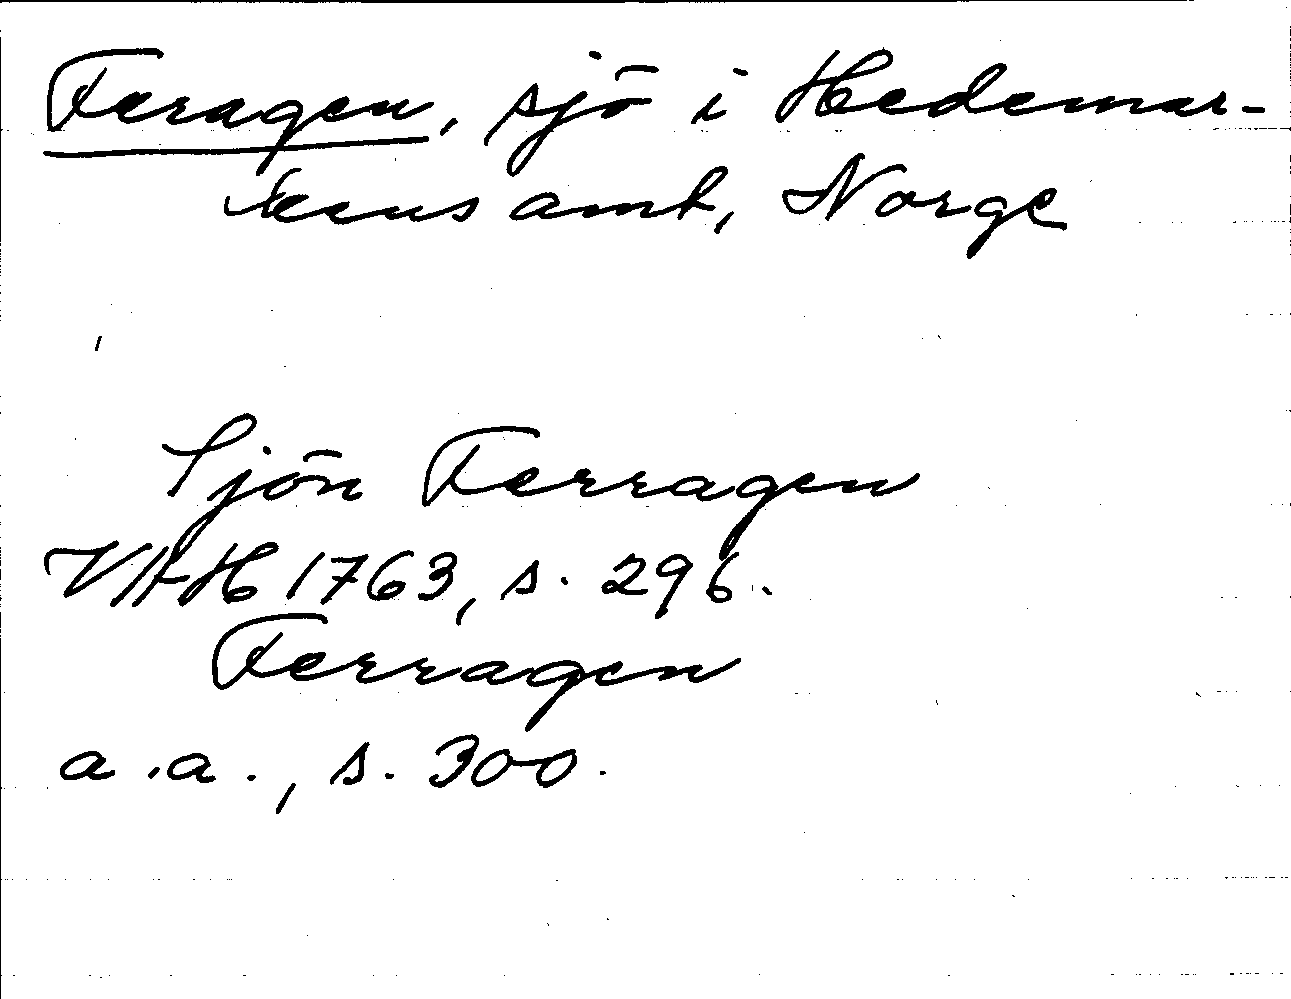 Feragen, sjö i Hedemar-
kens amt, Norge
Sjön Ferragen
VAH 1763, s. 296.
Ferragen
a.a., s. 300.